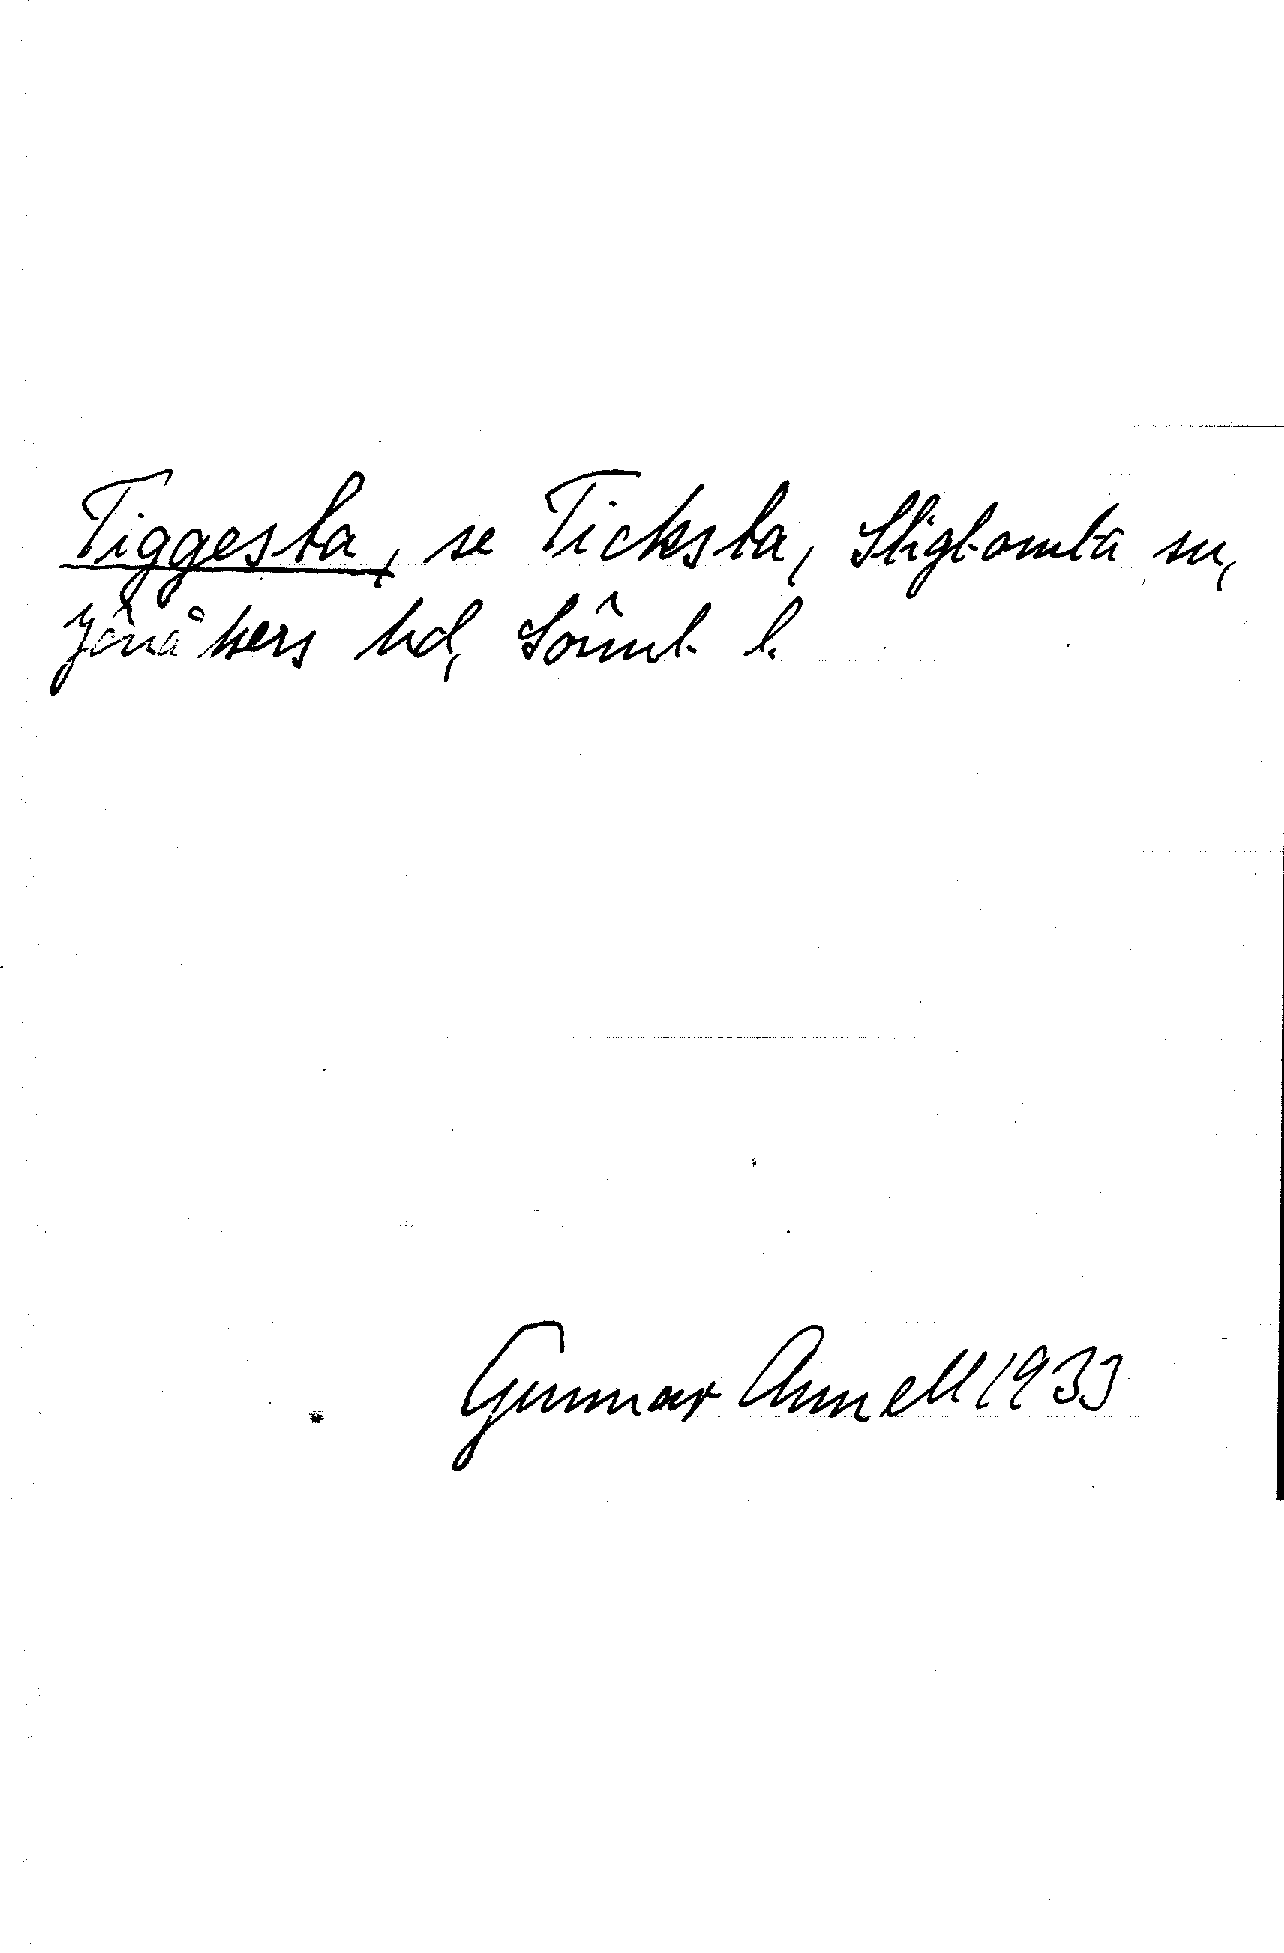 Tiggesta, se Ticksta, Stigtomta sn,
Jönåkers hd, Sörml. l.
Gunnar Annell 1933